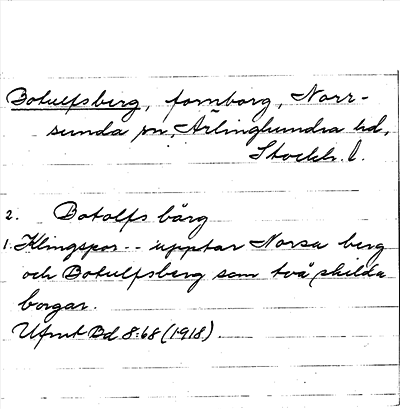 Botulfsberg, fornborg, Norr-
sunda sn, Ärlinghundra hd,
Stockh. l.
2. Botolfs bärg
1. Klingspor -- upptar Norsa berg
och Botulfsberg som två skilda
borgar.
Ufmt Bd 8:68 (1918)